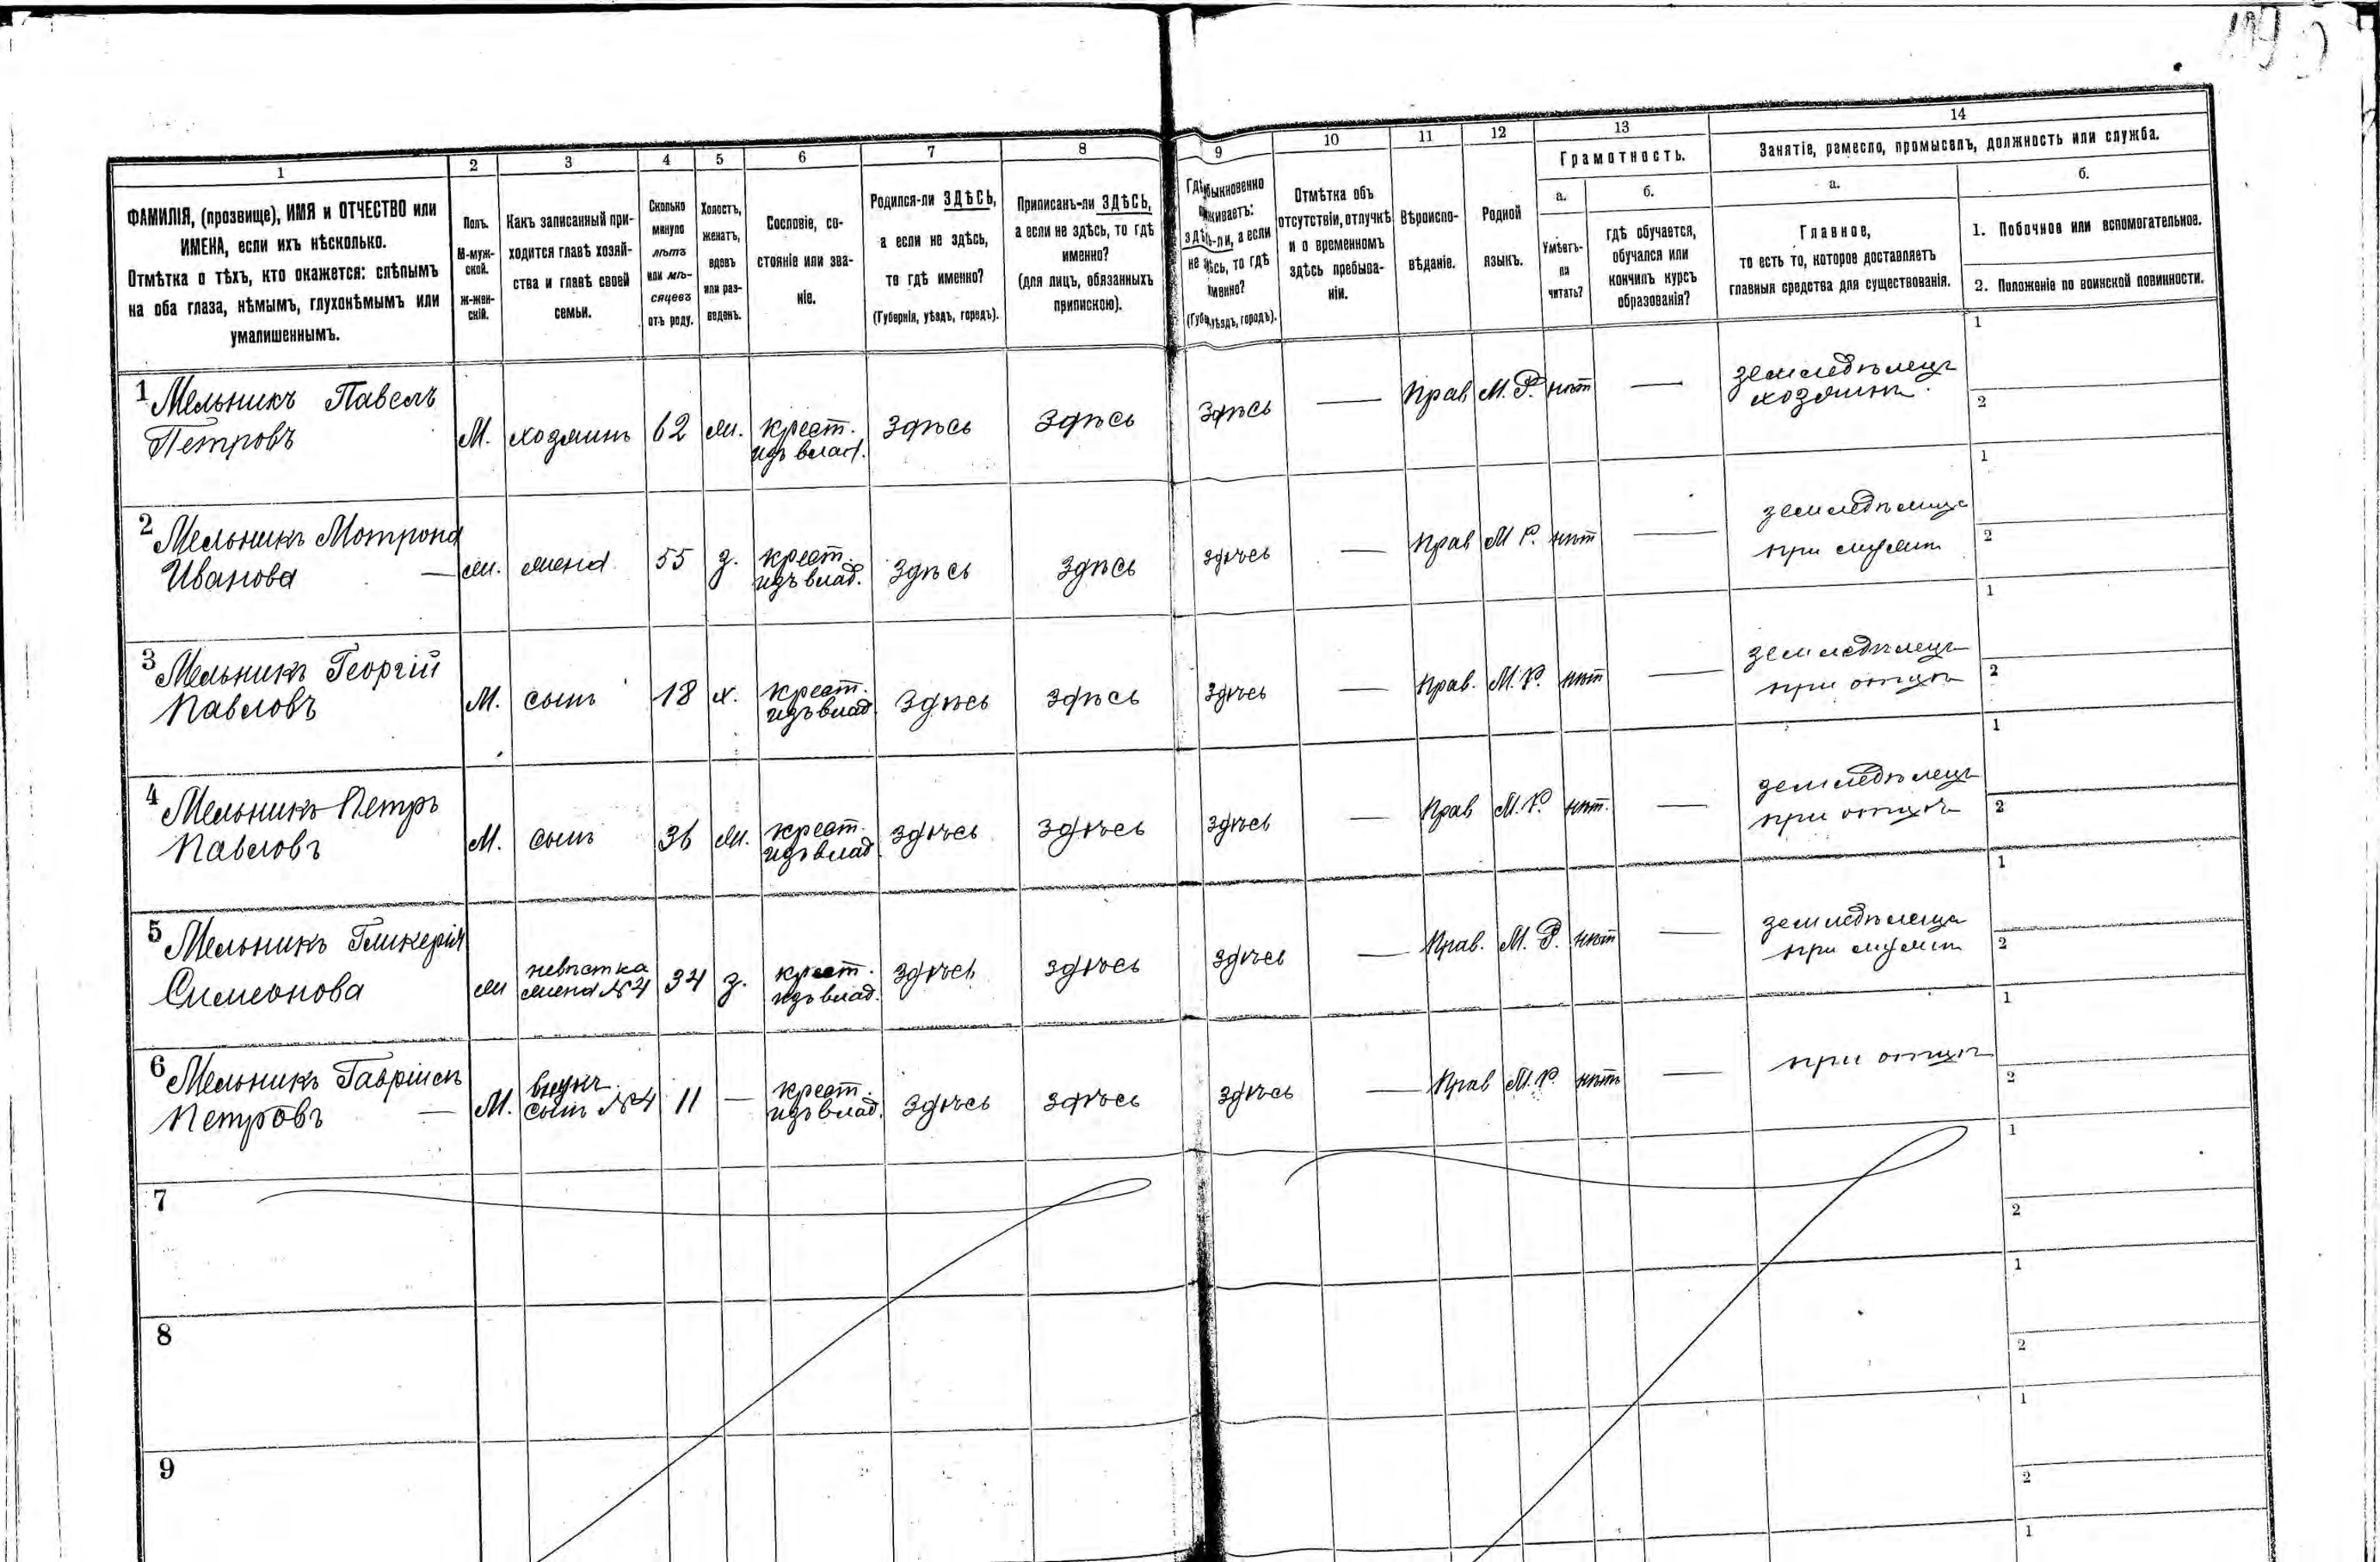 1
2
3
4
5
6
7
8
9
10
11
12
13
14
Грамотность.
Занятіе, ремесло, промыселъ, должность или служба.
ФАМИЛІЯ, (прозвище), ИМЯ и ОТЧЕСТВО или
ИМЕНА, если ихъ нѣсколько.
Отмѣтка о тѣхъ, кто окажется: слѣпымъ
на оба глаза, нѣмымъ, глухонѣмымъ или
умалишеннымъ.
Полъ.
М-муж-
ской.
ж-жен-
скій.
Какъ записанный при-
ходится главѣ хозяй-
ства и главѣ своей
семьи.
Сколько
минуло
лѣтъ
или мѣ-
сяцевъ
отъ роду.
Холостъ,
женатъ,
вдовъ
или раз-
веденъ.
Сословіе, со-
стояніе или зва-
ніе.
Родился-ли ЗДѢСЬ,
а если не здѣсь,
то гдѣ именно?
(Губернія, уѣздъ, городъ).
Приписанъ-ли ЗДѢСЬ,
а если не здѣсь, то гдѣ
именно?
(для лицъ, обязанныхъ
припискою).
здѣсь-ли, а если
Отмѣтка объ
отсутствіи, отлучкѣ
и о временномъ
здѣсь пребыва-
ніи.
Вѣроиспо-
вѣданіе.
Родной
языкъ.
а.
Умѣетъ-
ли
читать?
б.
гдѣ обучается,
обучался или
кончилъ курсъ
образованія?
а.
Главное,
то есть то, которое доставляетъ
главныя средства для существованія.
б.
1. Побочное или вспомогательное.
2. Положеніе по воинской повинности.
1 Мельникъ Павелъ
Петровъ
М. хозяинъ 62 ж. крест.
изъ влад. здѣсь здѣсь здѣсь — Прав М. Р. нѣт —
земледѣлецъ
хозяинъ
1
2
2 Мельникъ Мотрона
Иванова —
ж. жена 55 з. крест.
изъ влад. здѣсь здѣсь здѣсь — Прав М Р. нѣт —
земледѣлица
при мужѣ
1
2
3 Мельникъ Георгій
Павловъ
М. сынъ 18 х. крест.
изъ влад здѣсь здѣсь здѣсь — Прав. М. Р. нѣт —
земледѣлецъ
при отцѣ
1
2
4 Мельникъ Петръ
Павловъ
М. сынъ 36 ж. крест.
изъ влад здѣсь здѣсь здѣсь — Прав М. Р. нѣт. —
земледѣлецъ
при отцѣ
1
2
5 Мельникъ Гликерія
Симеонова
ж невѣстка
жена №4 34 з. крест.
изъ влад. здѣсь здѣсь здѣсь — Прав. М. Р. нѣт —
земледѣлица
при мужѣ
1
2
6 Мельникъ Гавріилъ
Петровъ —
М. внукъ
сынъ №4 11 — крест.
изъ влад. здѣсь здѣсь здѣсь — Прав М. Р. нѣтъ —
при отцѣ
1
2
7
1
2
8
1
2
9
1
2
1